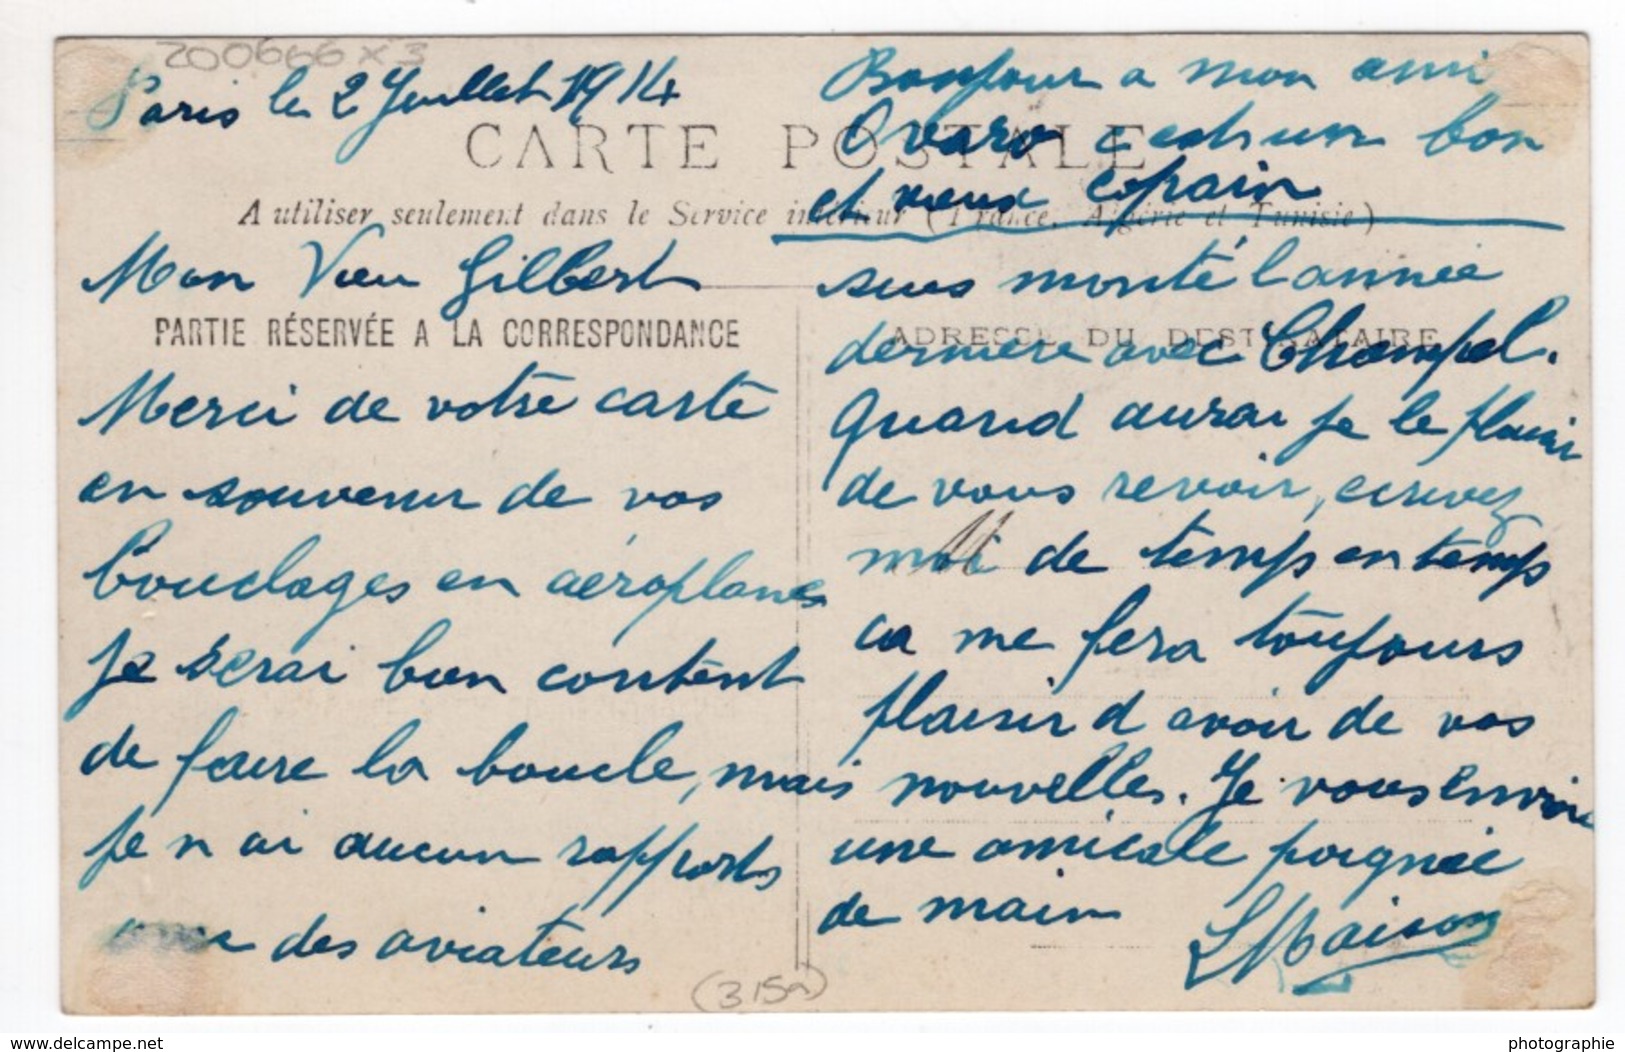 200666 x 3
Paris le 2 Juillet 1914
CARTE POSTALE
A utiliser seulement dans le Service intérieur (France, Algérie et Tunisie)
Mon Vieu Gilbert
PARTIE RÉSERVÉE A LA CORRESPONDANCE
Merci de votre carte
en souvenir de vos
bouclages en aéroplanes
je serai bien content
de faire la boucle, mais
je n ai aucun rapports
avec des aviateurs
(315a)
Bonjour a mon ami
Obaro c est un bon
et vieux copain
ADRESSE DU DESTINATAIRE
suis monté l année
derniere avec Champel.
Quand aurai je le plaisir
de vous revoir, ecrivez
moi de temps en temps
ca me fera toujours
plaisir d avoir de vos
nouvelles. Je vous envoie
une amicale poignée
de main
L Maison
www.delcampe.net
photographie